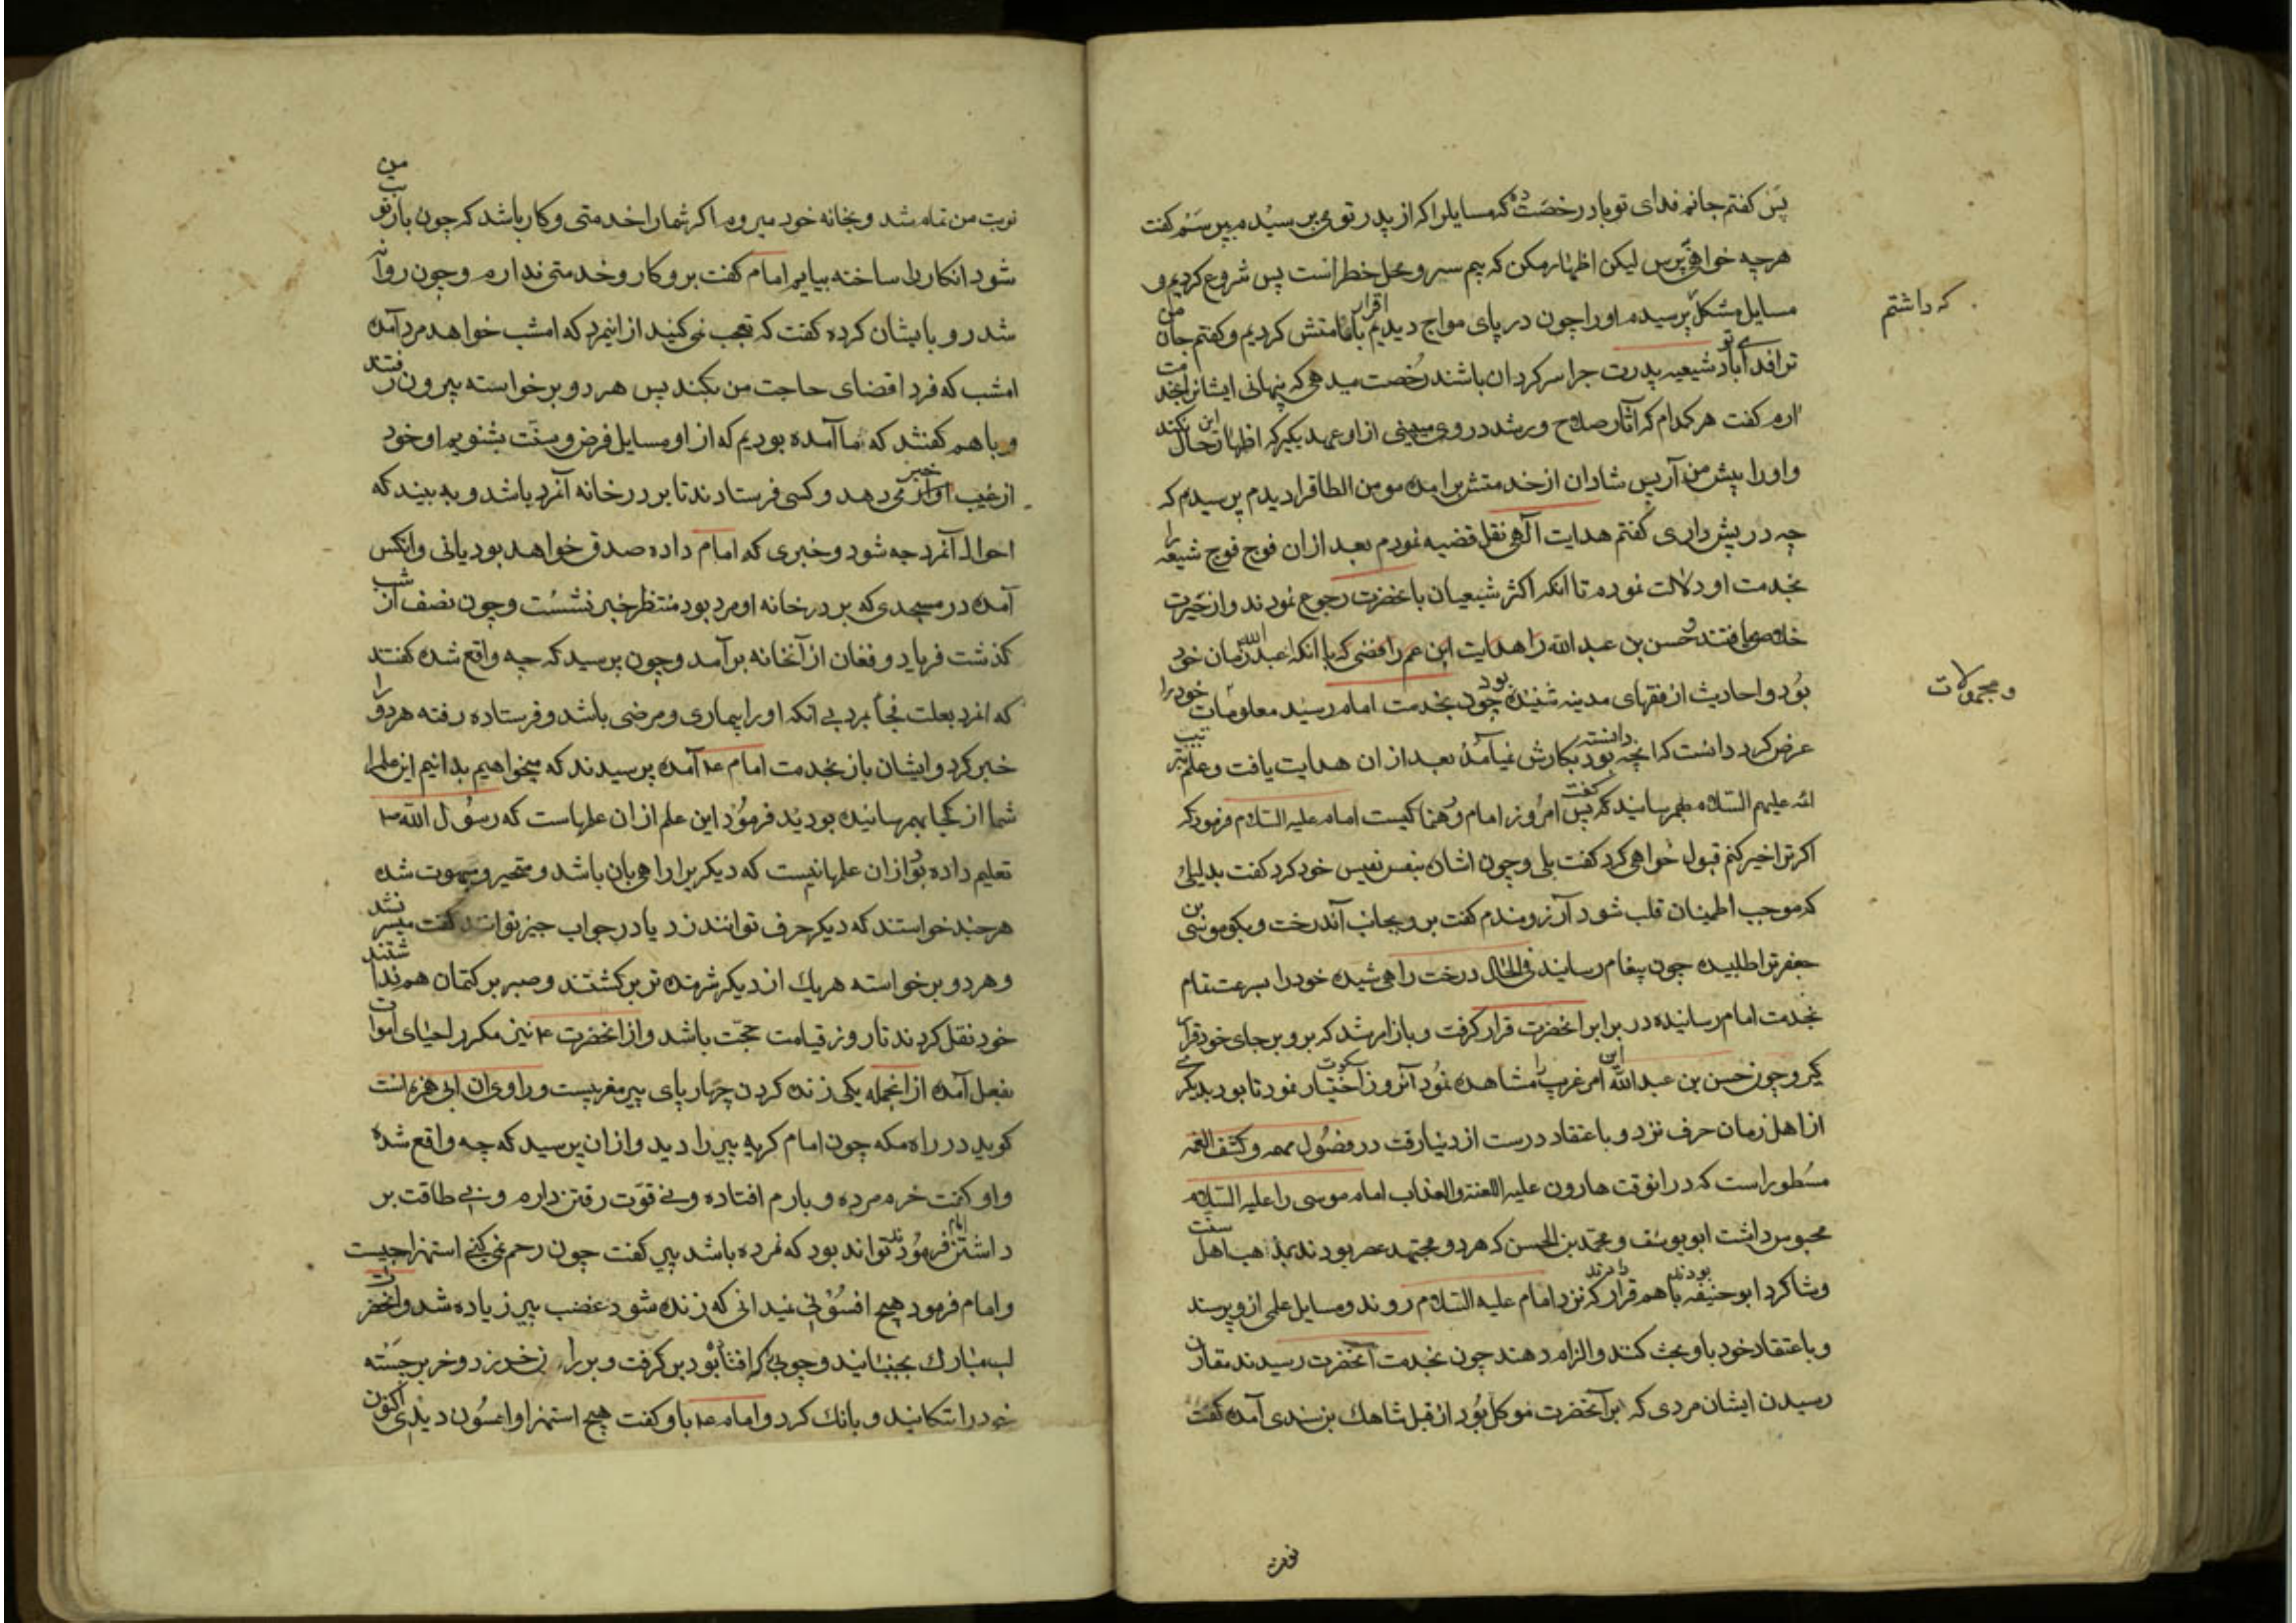 پس کفتم جانم فدای تو باد رخصت ده که مسایلرا که از پدر تو می پرسیدم بپرسم کفت
هرچه خواهی بپرس لیکن اظهار مکن که بیم سر و محل خطر است پس شروع کردیم و
مسایل مشکل پرسیدم او را چون دریای مواج دیدیم اقرار بامامتش کردیم و کفتم جان من
که داشتم
ترا فدا باد شیعیه پدرت چرا سرکردان باشند رخصت میدهی که پنهانی ایشانرا بخدمت
ارم کفت هر کدام که آثار صلاح و رشد در وی ببینی از او عهد بکیر که اظهار این حال نکند
و او را پیش من آر پس شادان از خدمتش برامده مومن الطاقرا دیدم پرسیدم که
چه در پیش داری کفتم هدایت آلهی نقل قضیه نمودم بعد ازان فوج فوج شیعه را
بخدمت او دلالت نموده تا انکه اکثر شیعیان باحضرت رجوع نمودند و از حیرت
خلاصی یافتند و حسن بن عبد الله را هدایت ابن عم رافضی که با انکه اعبد زمان خود
بود و احادیث از فقهای مدینه شنیده بود چون بخدمت امام رسید معلومات خود را
و مجهولات
عرض کرد دانست که انچه دانسته بود بکارش نمیآمد بعد از ان هدایت یافت و علم
الله علیهم السلام بهم رسانید که کفت پس امروز امام و رهنما کیست امام علیه السلام فرمود که
اکر ترا خبر کنم قبول خواهی کرد کفت بلی و چون اشاره بنفس نفیس خود کرد کفت بدلیلی
که موجب اطمینان قلب شود آرزومندم کفت برو بجانب آندرخت و بکو موسی بن
جعفر ترا طلبیده چون پیغام رسانید فی الحال درخت راهی شده خود را بسرعت تمام
بخدمت امام رسانیده در برابر انحضرت قرار کرفت و باز امر شد که برو بر جای خود قرار
کیر و چون حسن بن عبد الله این امر غریب را مشاهده نمود آنروز سکوت اختیار نمود تا بود بدیکری
از اهل زمان حرف نزد و باعتقاد درست از دنیا رفت در فصول مهمه و کشف الغمه
مسطور است که در انوقت هارون علیه اللعنة والعذاب امام موسی را علیه السلام
محبوس داشت ابو یوسف و محمد بن الحسن که هر دو مجتهد عصر بودند بمذهب اهل سنت
و شاکرد ابو حنیفه بودند با هم قرار دادند که نزد امام علیه السلام روند و مسایل علمی از و پرسند
و باعتقاد خود با و بحث کنند و الزام دهند چون بخدمت آنحضرت رسیدند مقارن
رسیدن ایشان مردی که بر آنحضرت موکل بود از قبل شاهک بن سندی آمده کفت
نوبت
نوبت من تمام شد و بخانه خود میروم اکر شما را خدمتی و کار باشد که چون باز نوبت من
شود انکار را ساخته بیایم امام کفت برو کار و خدمتی ندارم و چون روانه
شد رو بایشان کرده کفت که تعجب نمی کنید از اینمرد که امشب خواهد مرد آمده
امشب که فردا قضای حاجت من بکند پس هر دو برخواسته بیرون رفتند
و با هم کفتند که ما آمده بودیم که از او مسایل فرض و سنت بشنویم او خود
از غیب خبر می دهد و کسی فرستادند تا بر در خانه آنمرد باشد و به بیند که
احوال آنمرد چه شود و خبری که امام داده صدق خواهد بود یا نی و انکس
آمده در مسجدی که بر در خانه او مرد بود منتظر خبر نشست و چون نصف از شب
کذشت فریاد و فغان از آنخانه برآمد و چون پرسید که چه واقع شده کفتند
که انمرد بعلت فجأ بمرد بی انکه او را بیماری و مرضی باشد و فرستاده رفته هر دو را
خبر کرد و ایشان باز بخدمت امام ع آمده پرسیدند که میخواهیم بدانیم این علم را
شما از کجا بهم رسانیده بودید فرمود این علم از ان علمهاست که رسول الله ص
تعلیم داده بود از ان علمها نیست که دیکر یرا راهی بان باشد و متحیر و مبهوت شده
هر چند خواستند که دیکر حرف توانند زد یا در جواب چیز توانند کفت میسر نشد
و هر دو برخواسته هر یک از دیکر شرمنده تر برکشتند و صبر بر کتمان هم نداشتند
خود نقل کردند تا روز قیامت حجت باشد و از انحضرت ع نیز مکرر احیای اموات
بفعل آمده از انجمله یکی زنده کردن چهار پای پیر مغربیست و راوی ان
کوید در راه مکه چون امام کریه پیر را دید و از ان پرسید که چه واقع شده
و او کفت خرم مرده و بارم افتاده و نی قوت رفتن دارم و نی طاقت بر
داشتن امام فرمود تواند بود که نمرده باشد پیر کفت چون رحم نمی کنی استهزا چیست
و امام فرمود هیچ افسونی نمیدانی که زنده شود غضب پیر زیاده شد و انحضرت
لب مبارک بجنبانید و چوبی که افتاده بود بر کرفت و بر خر زد و خر برجسته
خود را تکانید و بانک کرد و امام ع با و کفت هیچ استهزا و افسون دیدی اکنون